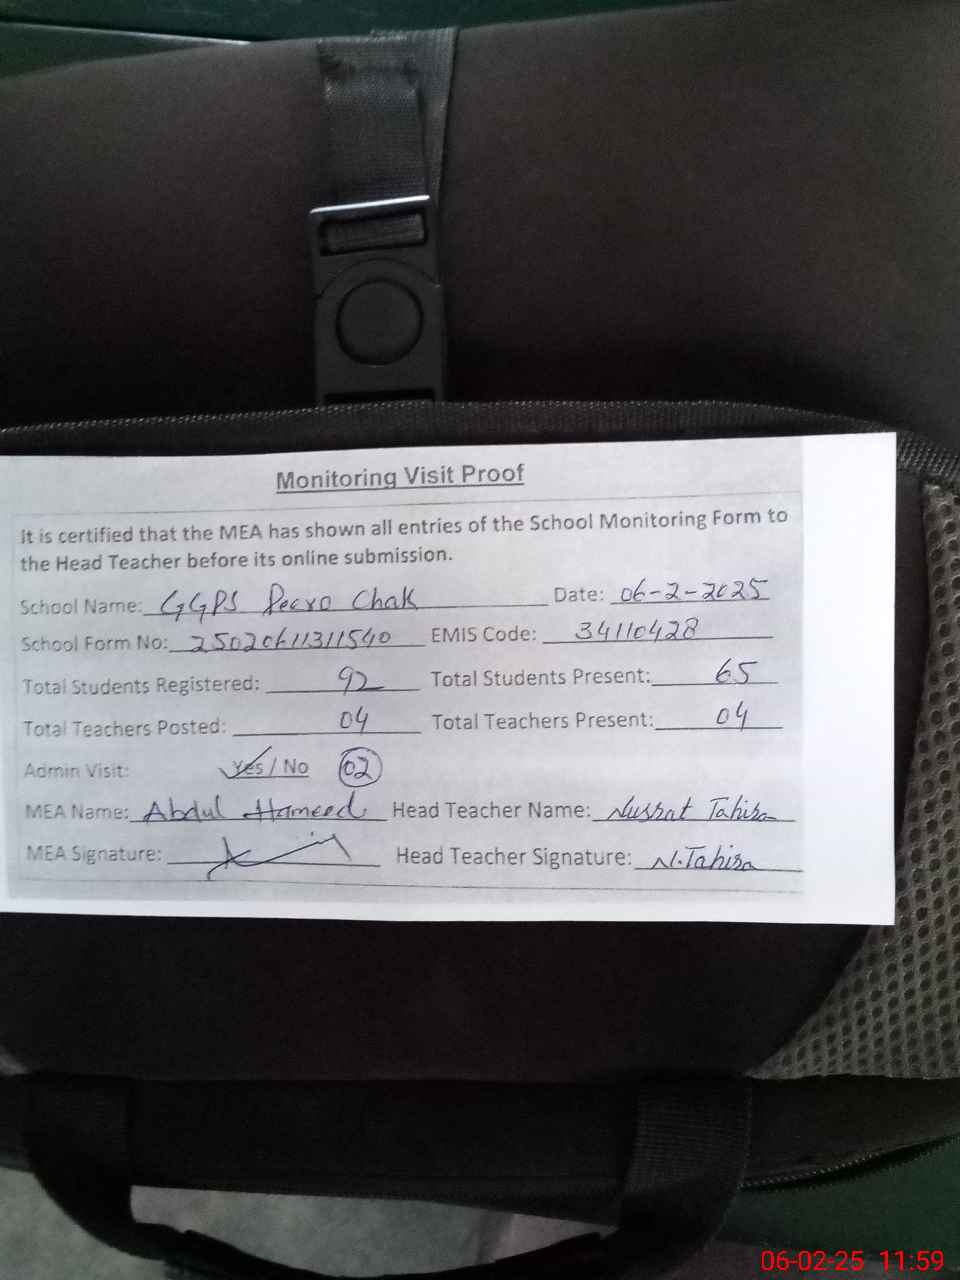 Monitoring Visit Proof
It is certified that the MEA has shown all entries of the School Monitoring Form to
the Head Teacher before its online submission.
School Name: GGPS Peero Chak Date: 06-2-2025
School Form No: 25020611311540 EMIS Code: 34110428
Total Students Registered: 92 Total Students Present: 65
Total Teachers Posted: 04 Total Teachers Present: 04
Admin Visit: Yes / No 02
MEA Name: Abdul Hameed Head Teacher Name: Nusrat Tahira
MEA Signature: Head Teacher Signature: N.Tahira
06-02-25 11:59